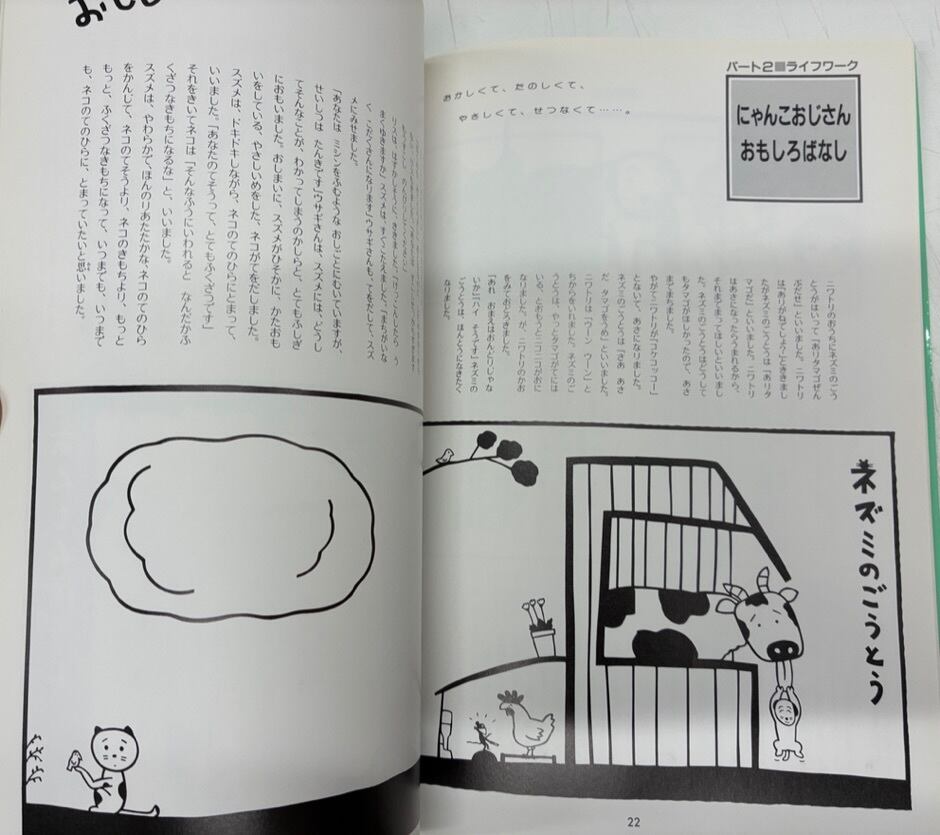 パート2■ライフワーク
にゃんこおじさん
おもしろばなし
おかしくて、たのしくて、
やさしくて、せつなくて……。
ニワトリのおうちにネズミのごう
とうがはいって「ありタマゴぜん
ぶだせ」といいました。ニワトリ
とききまし
たがネズミのごうとうは「ありタ
マゴだ」といいました。ニワトリ
はあさになったらうまれるから、
それまでまってほしいといいまし
た。ネズミのごうとうはどうして
もタマゴがほしかったので、あさ
までまちました。
やがてニワトリが「コケコッコー」
とないて、あさになりました。
ネズミのごうとうは「さあ あさ
だ タマゴをうめ」といいました。
ニワトリは「ウーン ウーン」と
ちからをいれました。ネズミのご
うとうは、やっとタマゴがてには
いる、とおもうとニコニコがおに
なりました。が、ニワトリのかお
をみておどろきました。
「あれ おまえはおんどりじゃな
いか」「ハイ そうです」ネズミの
ごうとうは、ほんとうになきたく
なりました。
ネズミのごうとう
22
リスは、はずかしそうに、ききました。「けっこんしたら う
まくゆきますか」スズメは、すぐこたえました。「まちがいな
く、こだくさんになります」ウサギさんも、てをだして、スズ
メにみせました。
「あなたは ミシンをふむような おしごとにむいていますが、
せいしつは たんきです」ウサギさんは、スズメには、どうし
てそんなことが、わかってしまうのかしらと、とてもふしぎ
におもいました。おしまいに、スズメがひそかに、かたおも
いをしている、やさしいめをした、ネコがてをだしました。
スズメは、ドキドキしながら、ネコのてのひらにとまって、
いいました。「あなたのてそうって、とてもふくざつです」
それをきいてネコは「そんなふうにいわれると なんだかふ
くざつなきもちになるな」と、いいました。
スズメは、やわらかでほんのりあたたかな、ネコのてのひら
をかんじて、ネコのてそうより、ネコのきもちより、もっと
もっと、ふくざつなきもちになって、いつまでも、いつまで
も、ネコのてのひらに、とまっていたいと思いました。